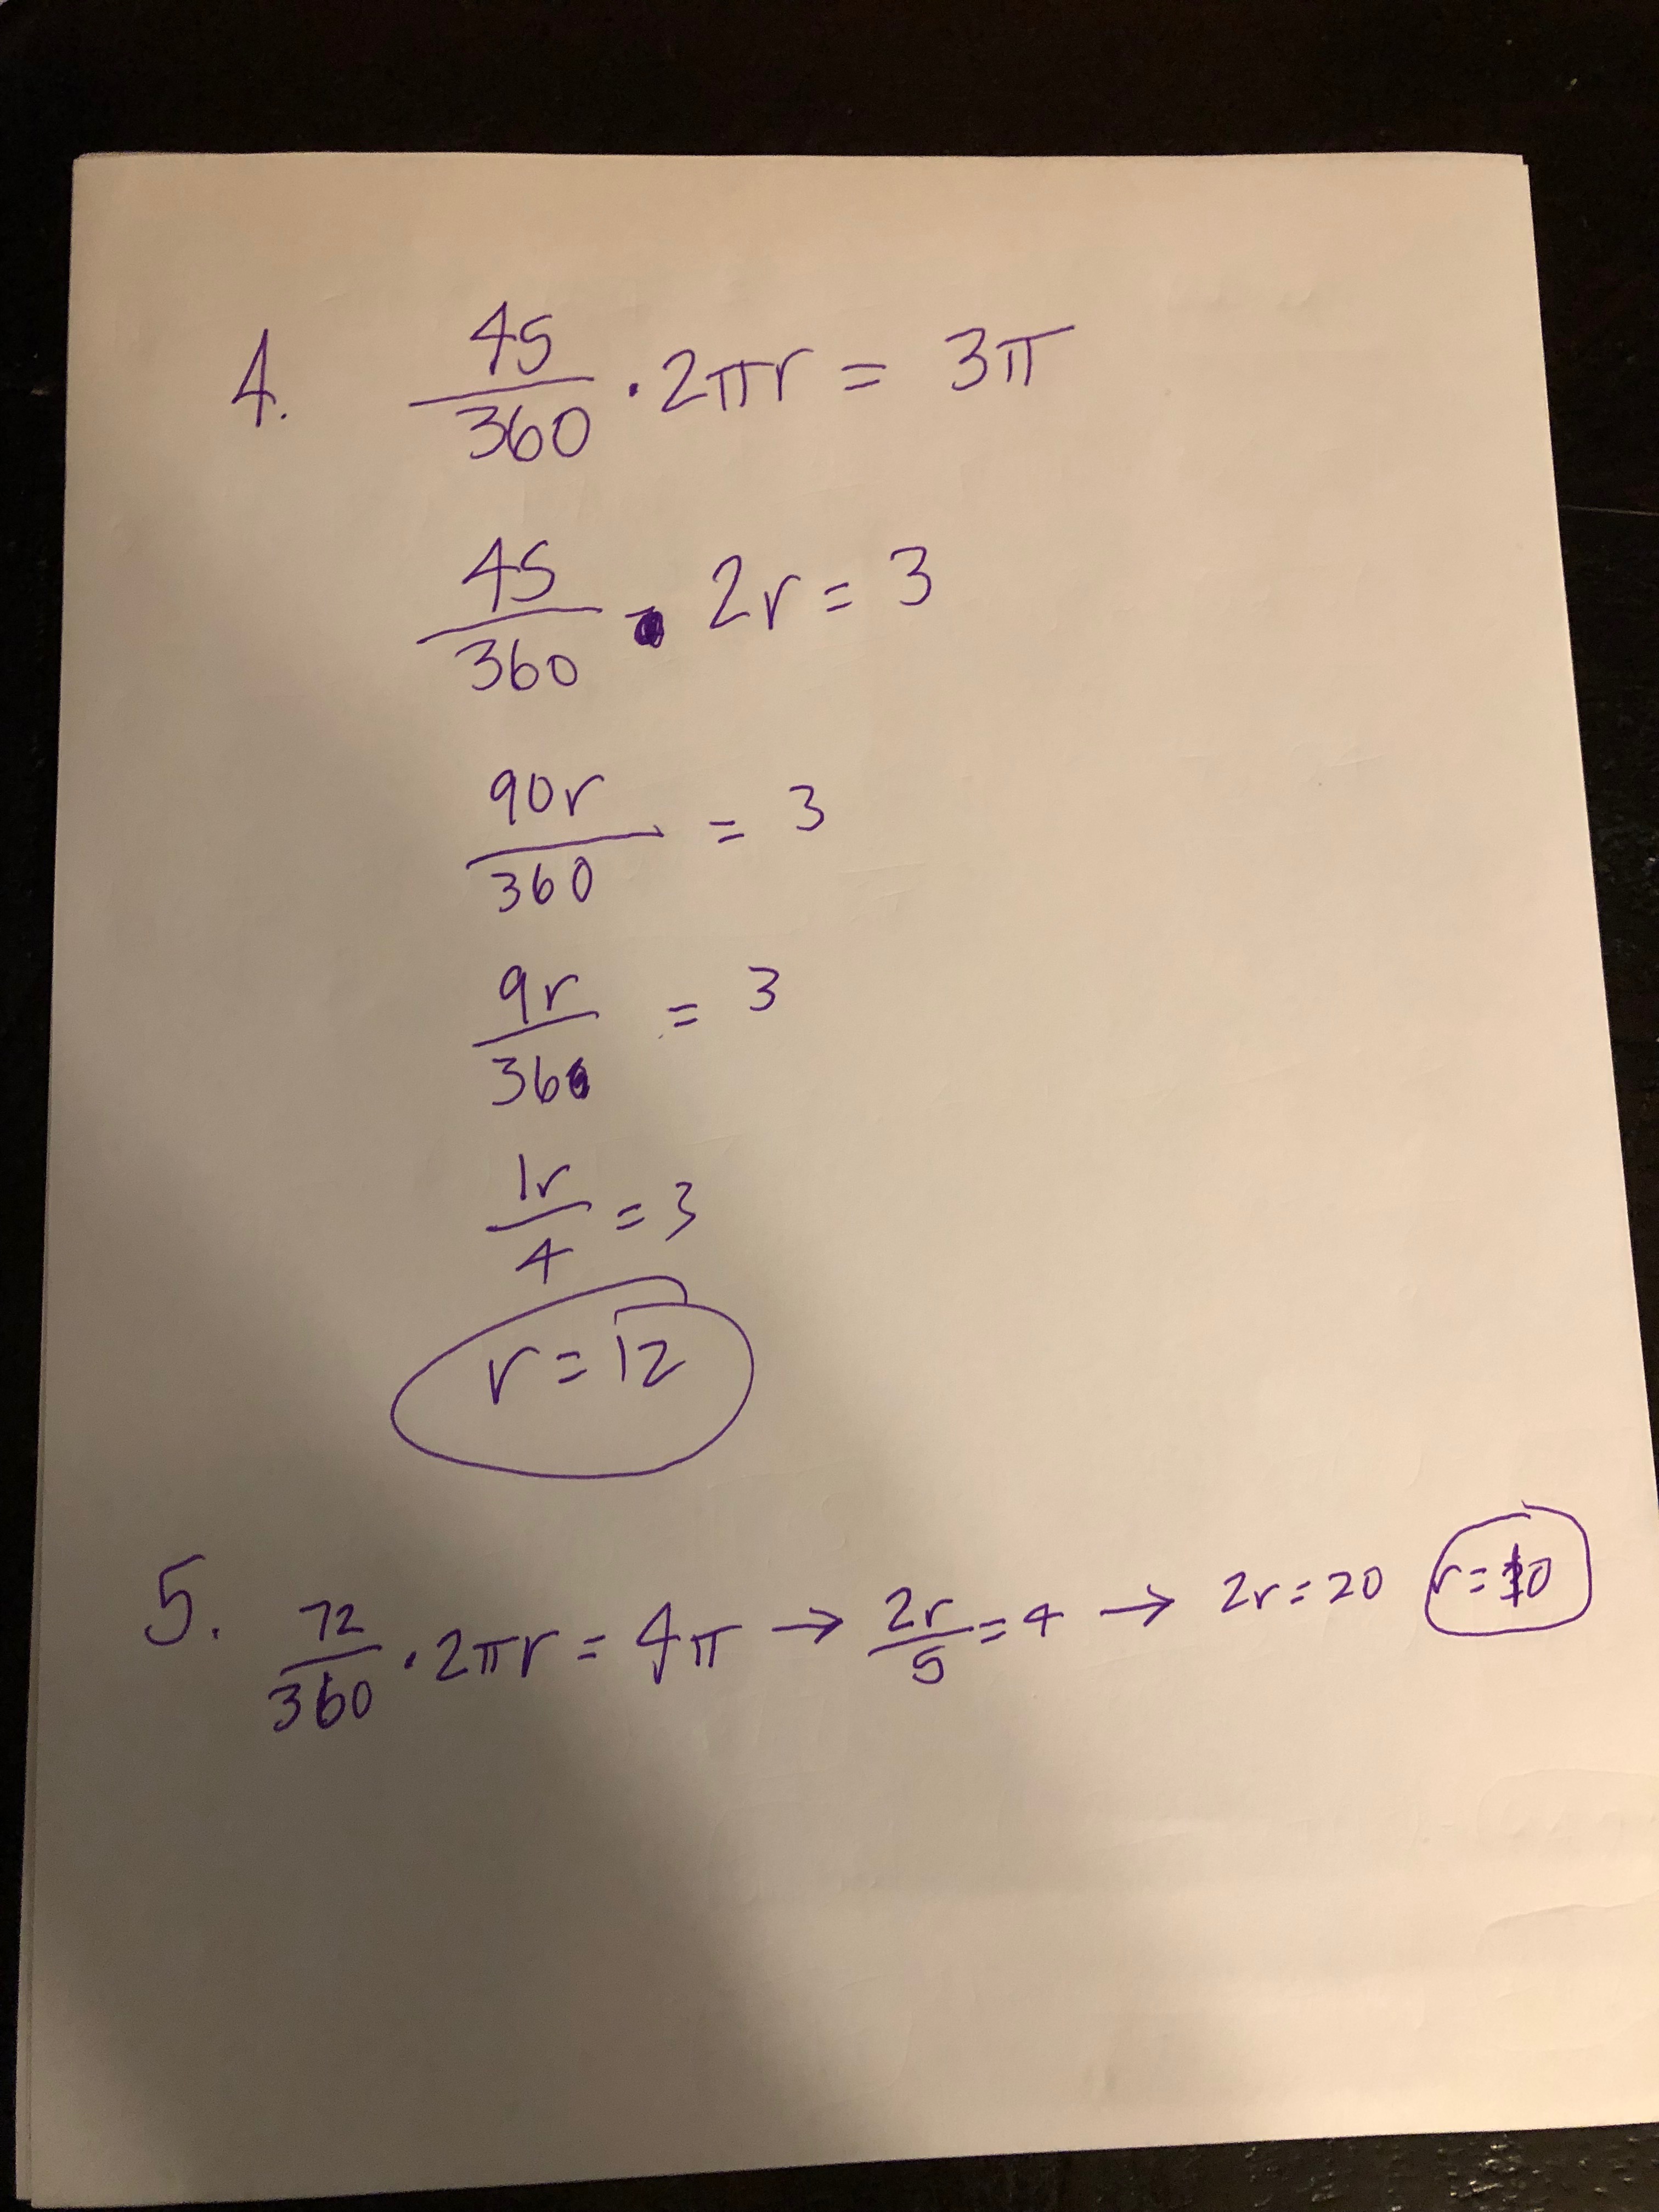 4. 45/360 · 2πr = 3π
45/360 · 2r = 3
90r/360 = 3
9r/36 = 3
1r/4 = 3
r = 12
5. 72/360 · 2πr = 4π → 2r/5 = 4 → 2r = 20 r = 10